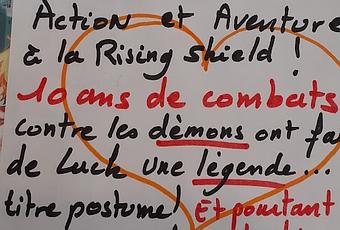 Action et Aventure
à la Rising shield !
10 ans de combats
contre les démons ont fa
de Luck une légende...
titre postume! Et pourtant